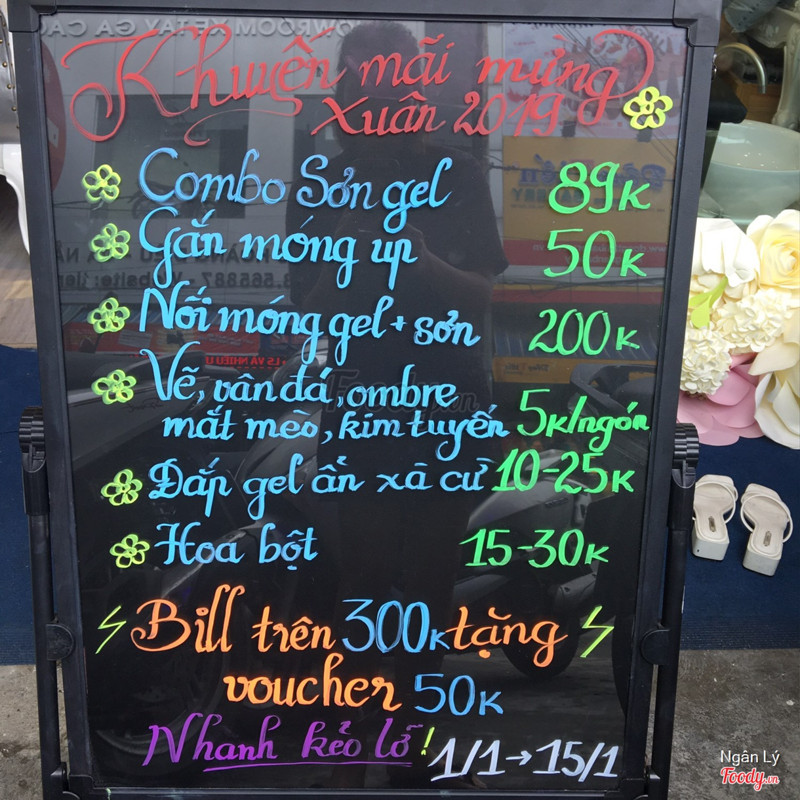 Khuyến mãi mừng
Xuân 2019
Combo Sơn gel 89K
Gắn móng up 50K
Nối móng gel + sơn 200K
Vẽ, vân đá, ombre
mắt mèo, kim tuyến 5K/ngón
Đắp gel ẩn xà cừ 10-25K
Hoa bột 15-30K
Bill trên 300K tặng
voucher 50K
Nhanh kẻo lỡ! 1/1→15/1
Ngân Lý
Foody.vn